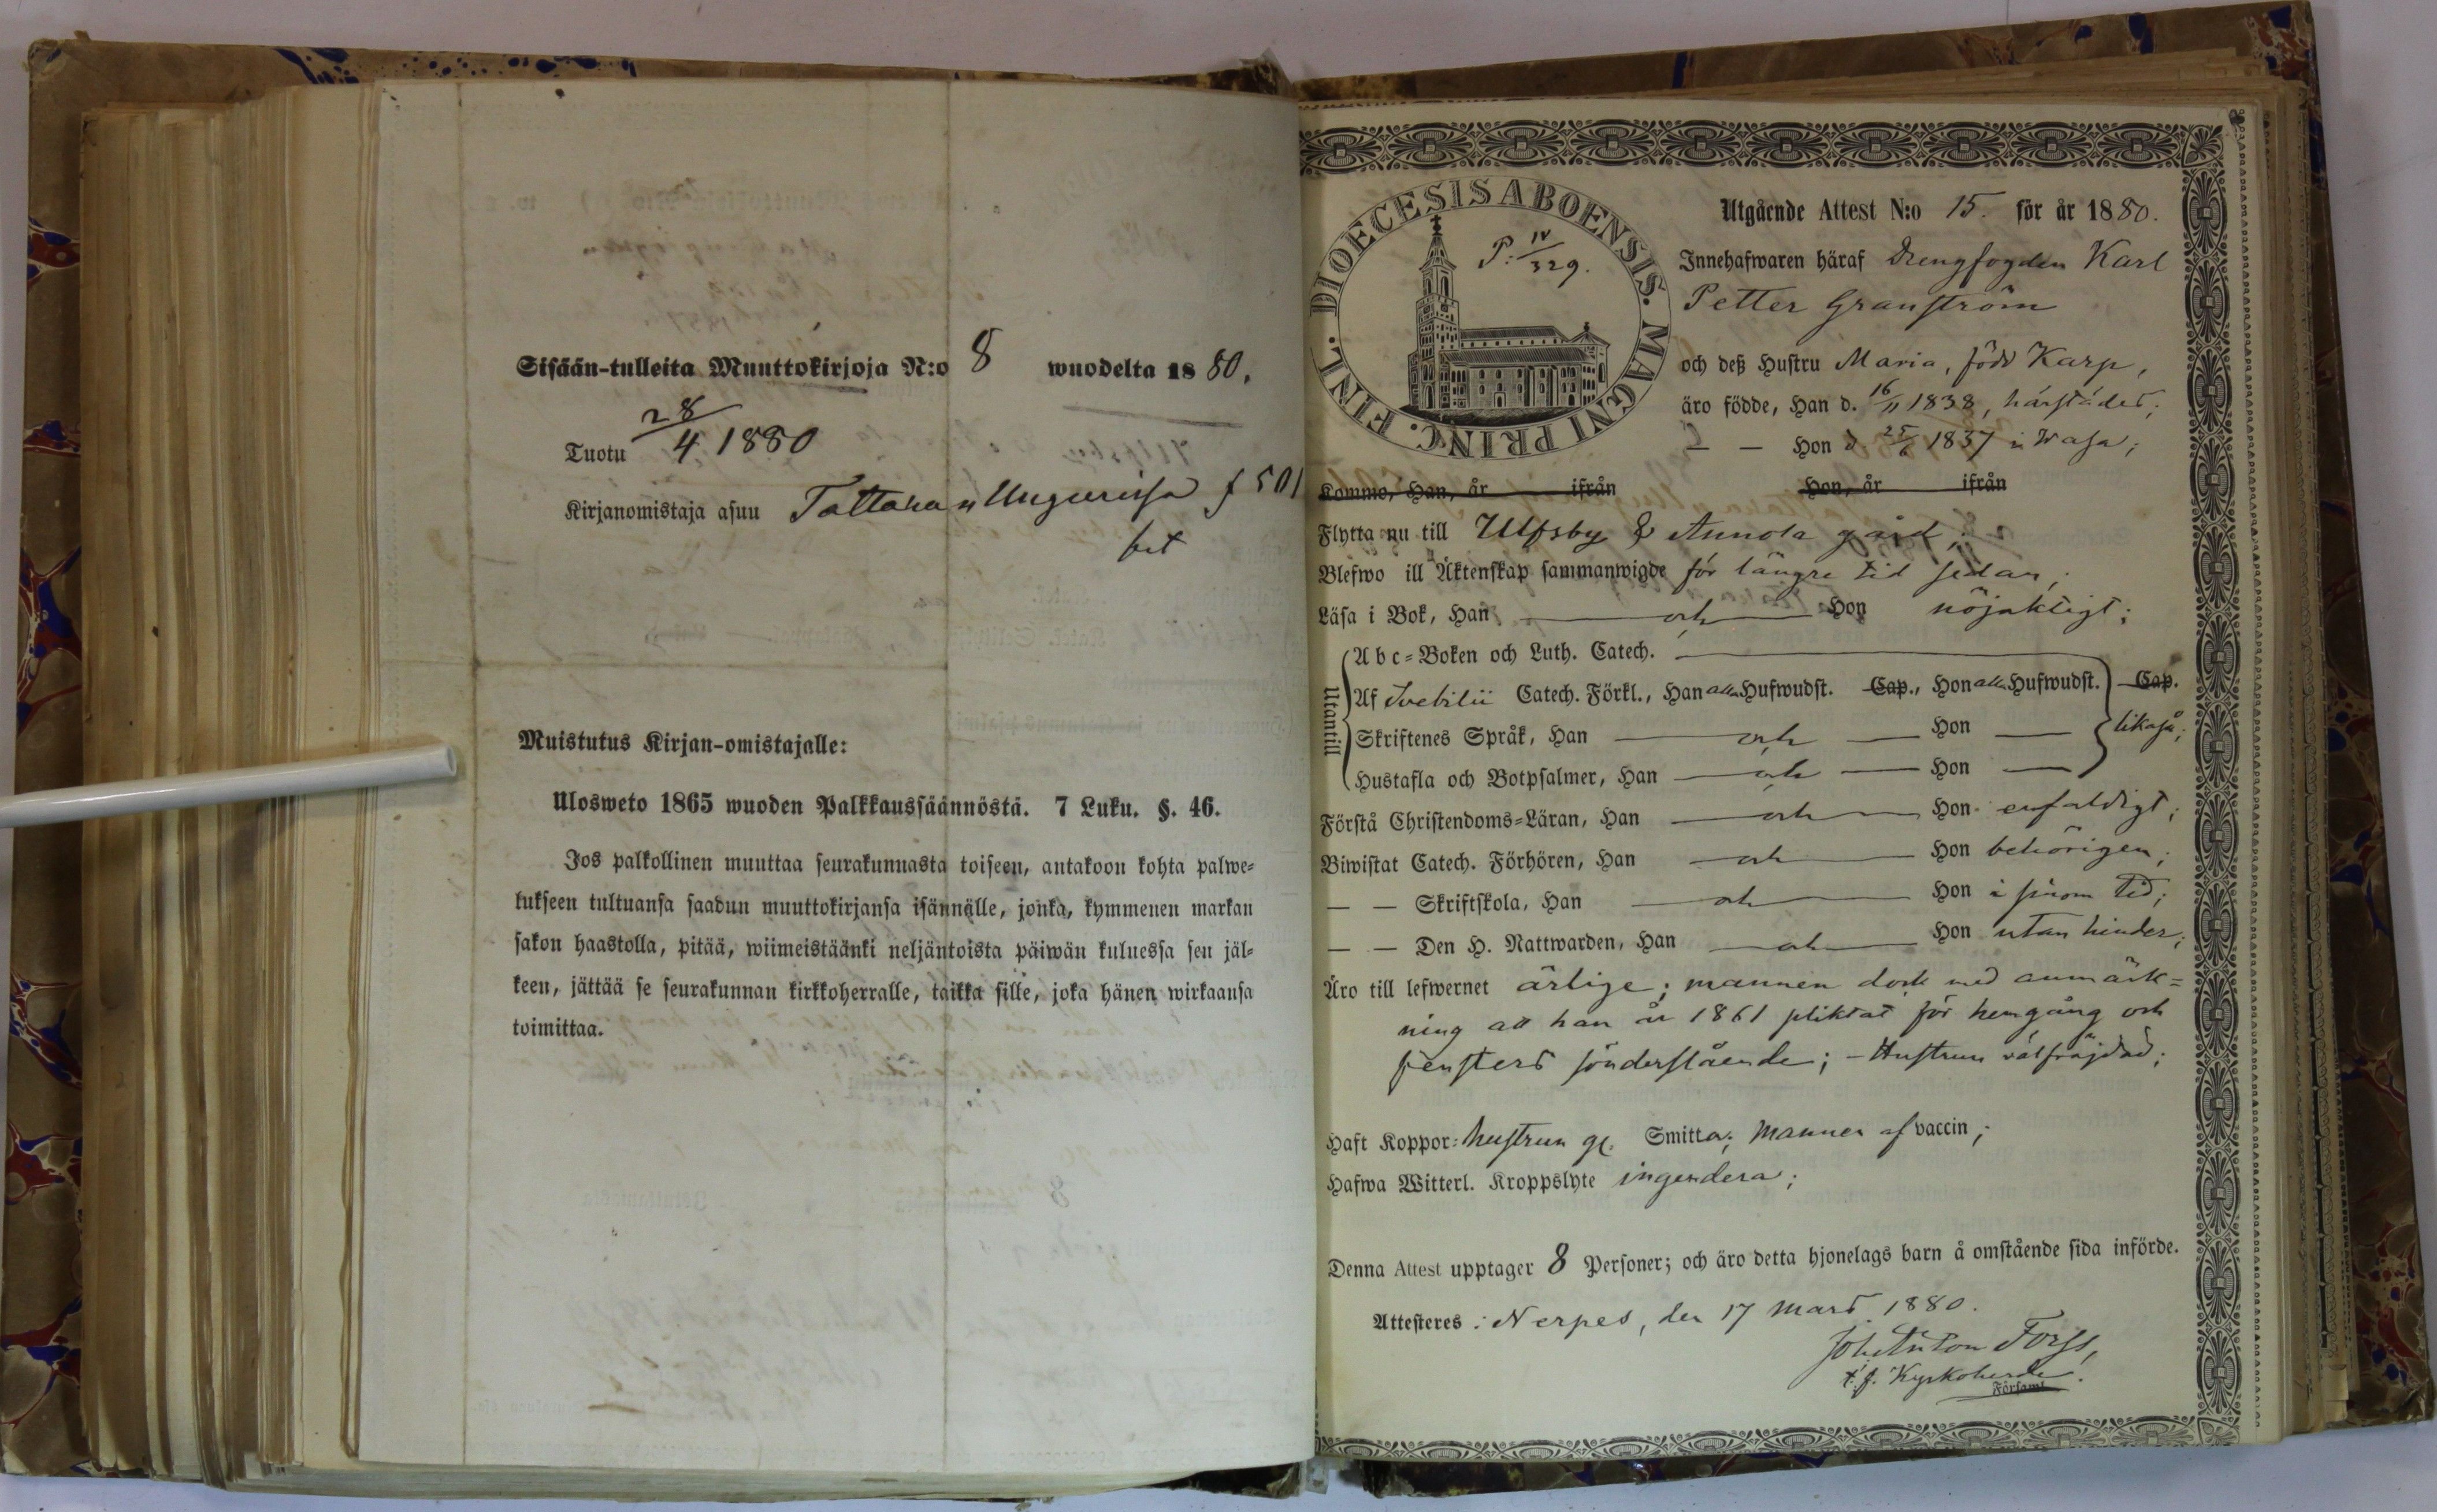 Sisään-tulleita Muuttokirjoja N:o 8 wuodelta 1880.
Tuotu 28/4 1880
Kirjanomistaja asuu Tattara n Ungurissa f 501
bet
Muistutus Kirjan-omistajalle:
Ulosweto 1865 wuoden Palkkaussäännöstä. 7 Luku. §. 46.
Jos palkollinen muuttaa seurakunnasta toiseen, antakoon kohta palwe-
lukseen tultuansa saadun muuttokirjansa isännälle, jonka, kymmenen markan
sakon haastolla, pitää, wiimeistäänki neljäntoista päiwän kuluessa sen jäl-
keen, jättää se seurakunnan kirkkoherralle, taikka sille, joka hänen wirkaansa
toimittaa.
FINL. DIOECESIS ABOENSIS. MAGNI PRINC.
P. IV/329.
Utgående Attest N:o 15. för år 1880.
Innehafwaren häraf Drengfogden Karl
Petter Granström
och deß Hustru Maria, född Karp,
äro födde, Han d. 16/11 1838, härstädes;
— — Hon d 25/6 1837 i Wasa;
Kommo, Han, år ifrån Hon, år ifrån
Flytta nu till Ulfsby & Annola gård;
Blefwo ill Äktenskap sammanwigde för längre tid sedan;
Läsa i Bok, Han och Hon nöjaktigt;
Utantill
Abc-Boken och Luth. Catech.
Af Svebilii Catech. Förkl., Han alla Hufwudst. Cap., Hon alla Hufwudst. Cap.
Skriftenes Språk, Han och Hon likaså;
Hustafla och Botpsalmer, Han och Hon
Förstå Christendoms-Läran, Han och Hon enfaldigt;
Biwistat Catech. Förhören, Han och Hon behörigen;
— — Skriftskola, Han och Hon i sinom tid;
— — Den H. Nattwarden, Han och Hon utan hinder;
Äro till lefwernet ärlige; mannen dock med anmärk-
ning att han år 1861 pliktat för hemgång och
fensters sönderslående; – Hustrun välfräjdad;
Haft Koppor: hustrun gl. Smitta; mannen af vaccin;
Hafwa Witterl. Kroppslyte ingendera;
Denna Attest upptager 8 Personer; och äro detta hjonelags barn å omstående sida införde.
Attesteres: Nerpes, den 17 Mars 1880.
Joh Anton Forss,
t. f. Kyrkoherde.
Församl